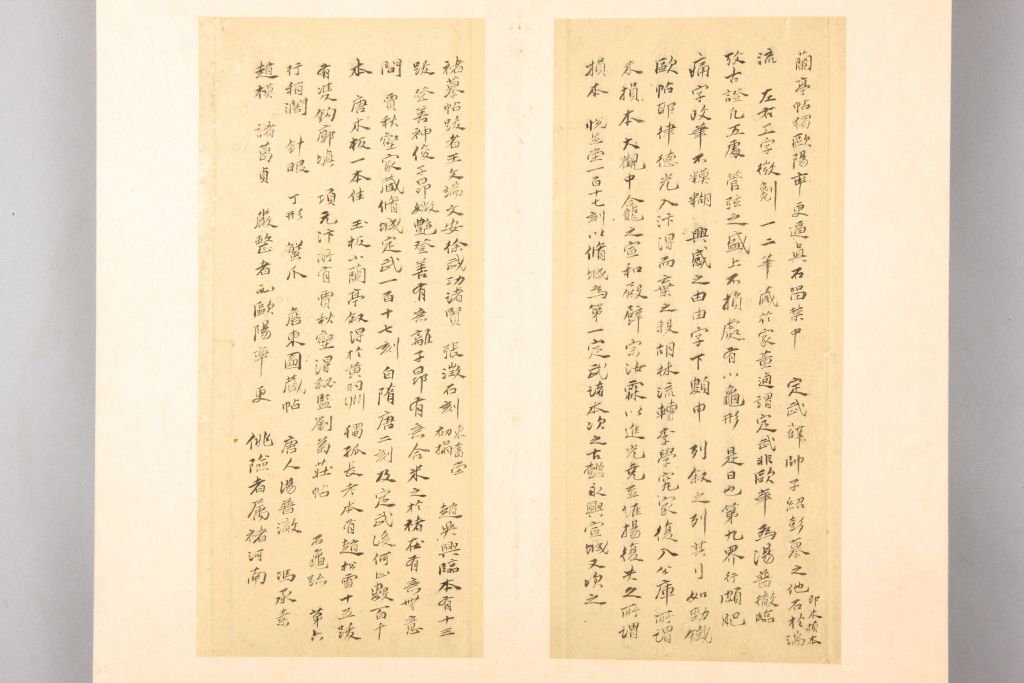 蘭亭帖獨歐陽率更逼真石晉禁中 定武薛帥子紹彭摹之他石於湍
即未損本
流 左右工字微劖 一二筆 藏於家董逌謂定武非歐筆 為湯普徹臨
攷古證凡五處 管弦之盛上不損處有小龜形 是日也第九界行頗肥
痛字改筆不模糊 興感之由由字下類申 列叙之列 其刂如勁鐵
歐帖耶律德光入汴得而棄之殺胡林流轉李學究家復入公庫所謂
未損本大觀中龕之宣和殿壁 宗汝霖以進光堯至維揚復失久所謂
損本 悅生堂一百十七刻以脩城為第一定武諸本次之古懿永興宣城又次之
褚摹帖跋者王文端文安徐武功諸賢 張澂石刻 趙吳興臨本有十三
東書堂
初搨
跋登善神俊子昂媺艷登善有無離子昂有無合米之於褚在有無無意
間 賈秋壑家藏脩城定武一百十七刻自隋唐二刻及定武後何止數百千
本 唐木板一本佳 玉板小蘭亭叙得於黃羽淵 獨孤長老本有趙松雪十五跋
有雙鈎廓填 項元汴所有賈秋壑得秘監劉菊莊帖 石龜蹟 第六
行稍濶 針眼 丁形 蟹爪 詹東圖藏帖 唐人湯普澈 馮承素
趙模 諸葛貞 嚴整者而歐陽率更 佻險者属褚河南